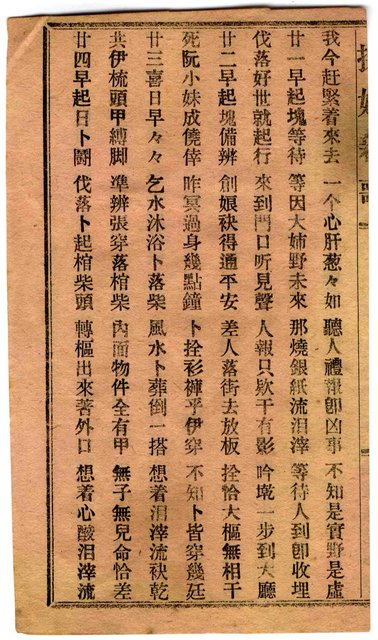 我今赶緊着來去　一个心肝葱々如　聽人禮報卽凶事　不知是實野是虛
廿一早起塊等待　等因大姉野未來　那燒銀紙流泪滓　等待人到卽收埋
伐落好世就起行　來到門口听見聲　人報只欵干有影　吟墘一步到大廳
廿二早起塊備辨　創娘袂得通平安　差人落街去放板　拴恰大樞無相干
死阮小妹成僥倖　昨冥過身幾點鐘　卜拴衫褲乎伊穿　不知卜皆穿幾廷
廿三喜日早々々　乞水沐浴卜落柴　風水卜葬倒一搭　想着泪滓流袂乾
共伊梳頭甲縛脚　準辨張穿落棺柴　內面物件全有甲　無子無兒命恰差
廿四早起日卜鬪　伐落卜起棺柴頭　轉樞出來著外口　想着心酸泪滓流